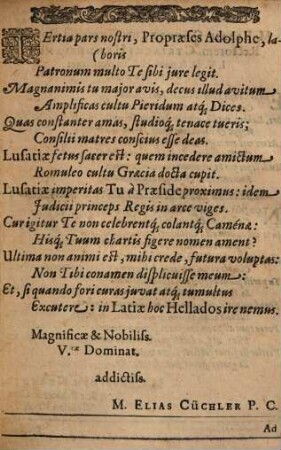 TErtia pars nostri, Propræses Adolphe, la-
(boris
Patronum multo Te sibi jure legit.
Magnanimis tu major avis, decus illud avitum
Amplificas cultu Pieridum atq; Dices.
Quas constanter amas, studioq; tenace tueris;
Consilii matres conscius esse deas.
Lusatiæ fetus sacer est: quem incedere amictum
Romuleo cultu Græcia docta cupit.
Lusatiæ imperitas Tu à Præside proximus: idem
Judicii princeps Regis in arce viges.
Cur igitur Te non celebrent, colantq; Caménæ:
Hisq; Tuum chartis figere nomen ament?
Ultima non animi est, mihi crede, futura voluptas:
Non Tibi conamen displicuisse meum:
Et, si quando fori curas juvat atq; tumultus
Excutere: in Latiæ hoc Hellados ire nemus.
Magnificæ & Nobiliss.
V.ræ Dominat.
addictiss.
M. ELIAS CÜCHLER P. C.
Ad